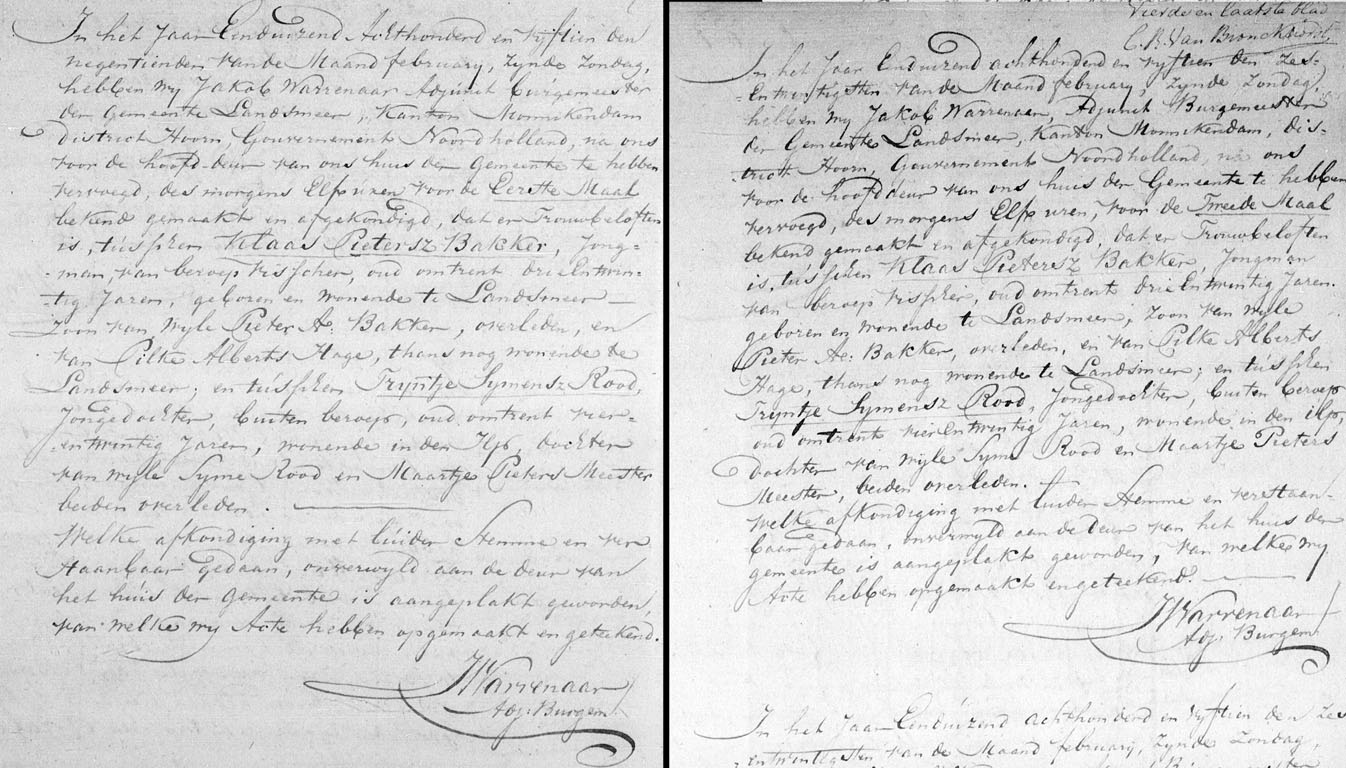 In het Jaar Eenduizend Achthonderd en vyftien den
negentienden van de Maand february, zynde Zondag,
hebben wy Jakob Warrenaar Adjunct Burgemeester
der Gemeente Landsmeer, Kanton Monnikendam
district Hoorn, Gouvernement Noordholland, na ons
voor de hoofd-deur van ons huis der Gemeente te hebben
vervoegd, des morgens Elf uren voor de Eerste Maal
bekend gemaakt en afgekondigd, dat er Trouwbeloften
is, tusschen Klaas Pietersz Bakker, Jong-
-man, van beroep visscher, oud omtrent drie Entwin-
-tig Jaren, geboren en wonende te Landsmeer
Zoon van wyle Pieter A. Bakker, overleden, en
van Pilke Alberts Hage, thans nog wonende te
Landsmeer; en tusschen Tryntje Symensz Rood,
Jongedochter, buiten beroep, oud omtrent vier-
-entwintig Jaren, wonende in den Ilp, dochter
van wyle Syme Rood en Maartje Pieters Meester
beiden overleden.
Welke afkondiging met luider Stemme en ver
Staanbaar gedaan, onverwyld aan de deur van
het huis der gemeente is aangeplakt geworden,
van welke wy Acte hebben opgemaakt en getekend.
JWarrenaar
Adj: Burgem:
Vierde en laatste blad
C. B. Van Bronckhorst
In het Jaar Eenduizend achthonderd en vyftien den Zes-
-Entwintigsten van de Maand february, Zynde Zondag,
hebben wy Jakob Warrenaar, Adjunct Burgemeester
der Gemeente Landsmeer, Kanton Monnikendam, dis-
-trict Hoorn, Gouvernement Noordholland, na ons
voor de hoofddeur van ons huis der Gemeente te hebben
vervoegd, des morgens Elf uren, voor de Tweede Maal
bekend gemaakt en afgekondigd, dat er Trouwbeloften
is, tusschen Klaas Pietersz Bakker Jongman
van beroep visscher, oud omtrent drie Entwintig Jaren.
geboren en wonende te Landsmeer, zoon van wyle
Pieter A: Bakker, overleden, en van Pilke Alberts
Hage, thans nog wonende te Landsmeer; en tusschen
Tryntje Symensz Rood, Jongedochter, buiten beroep
oud omtrent vier Entwintig Jaren, wonende in den ilp,
dochter van wyle Syme Rood en Maartje Pieters
Meester, beiden overleden.
welke afkondiging met luider Stemme en verstaan-
baar gedaan, onverwyld aan de deur van het huis der
gemeente is aangeplakt geworden, van welke wy
Acte hebben opgemaakt en getekend.
JWarrenaar
Adj: Burgem:
In het Jaar Eenduizend achthonderd en vyftien den Zes
-entwintigsten van de Maand february, Zynde Zondag,